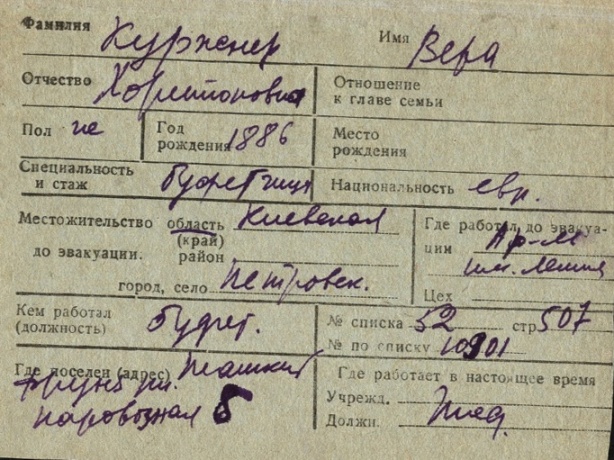 Фамилия Куржнер Имя Вера
Отчество Харитоновна Отношение к главе семьи
Пол же Год рождения 1886 Место рождения
Специальность и стаж буфетчица Национальность евр.
Местожительство область Киевская Где работал до эвакуа-
(край) ции
до эвакуации. район им. Ленина
город, село Петровск. Цех
Кем работал (должность) буфет. № списка 52 стр 507
№ по списку 10901
Где поселен (адрес) Ташкент Где работает в настоящее время
Фрунз Учрежд.
паровозная 6 Должн.